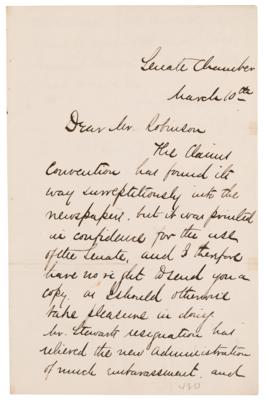 Senate Chamber
March 10th
Dear Mr. Robinson
The Claims
Convention has found its
way surreptitiously into the
newspapers, but it was printed
in confidence for the use
of the Senate, and I therefore
have no right to send you a
copy, as I should otherwise
take pleasure in doing.
Mr. Stewart's resignation has
relieved the new administration
of much embarrassment, and